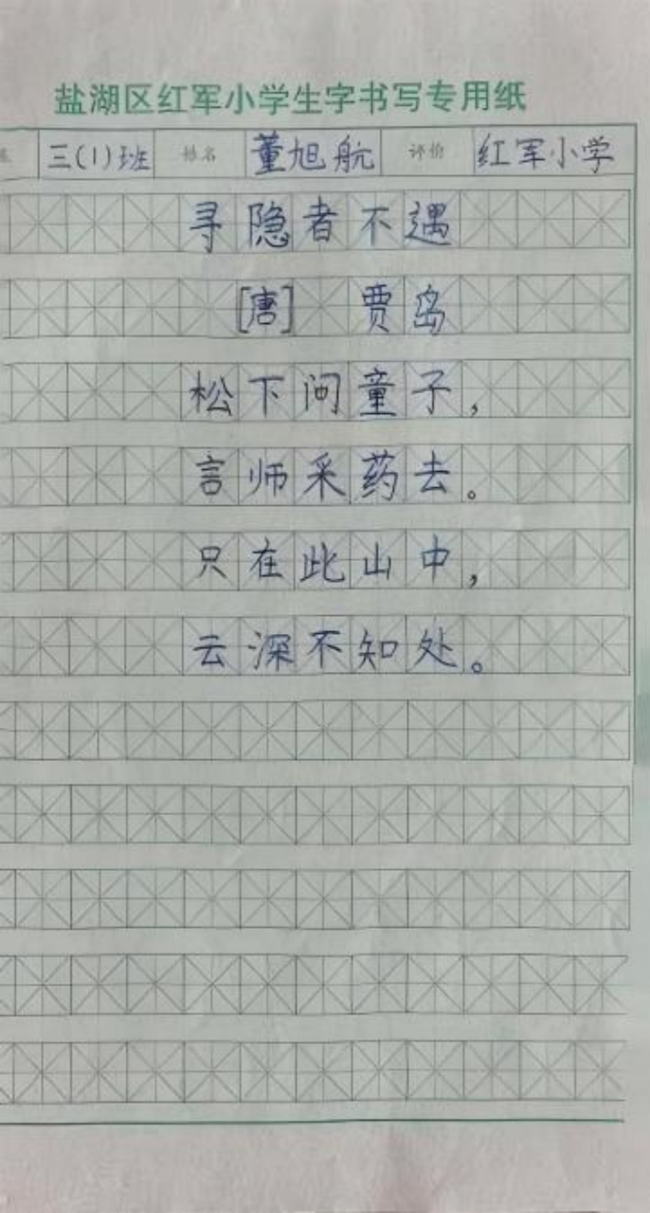 盐湖区红军小学生字书写专用纸
三(1)班 姓名 董旭航 评价 红军小学
寻隐者不遇
[唐] 贾岛
松下问童子，
言师采药去。
只在此山中，
云深不知处。